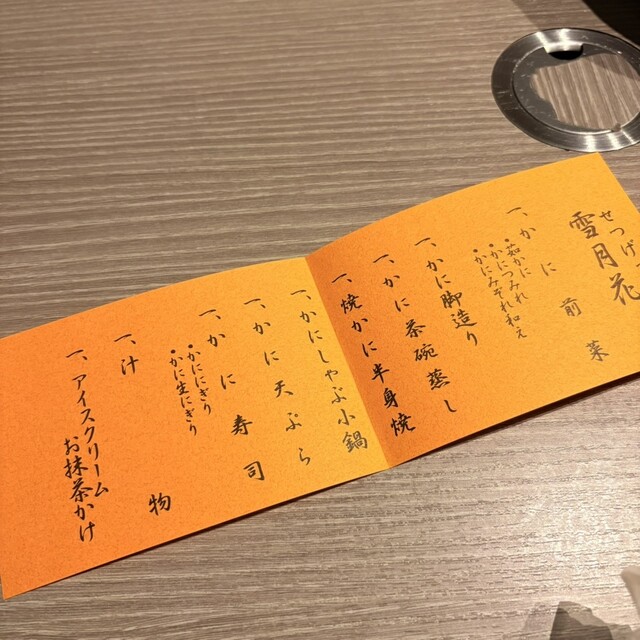 せつげ
雪月花
一、かに前菜
•茹かに
•かにつみれ
•かにみぞれ和え
一、かに脚造り
一、かに茶碗蒸し
一、焼かに半身焼
一、かにしゃぶ小鍋
一、かに天ぷら
一、かに寿司
•かににぎり
•かに生にぎり
一、汁物
一、アイスクリーム
お抹茶かけ